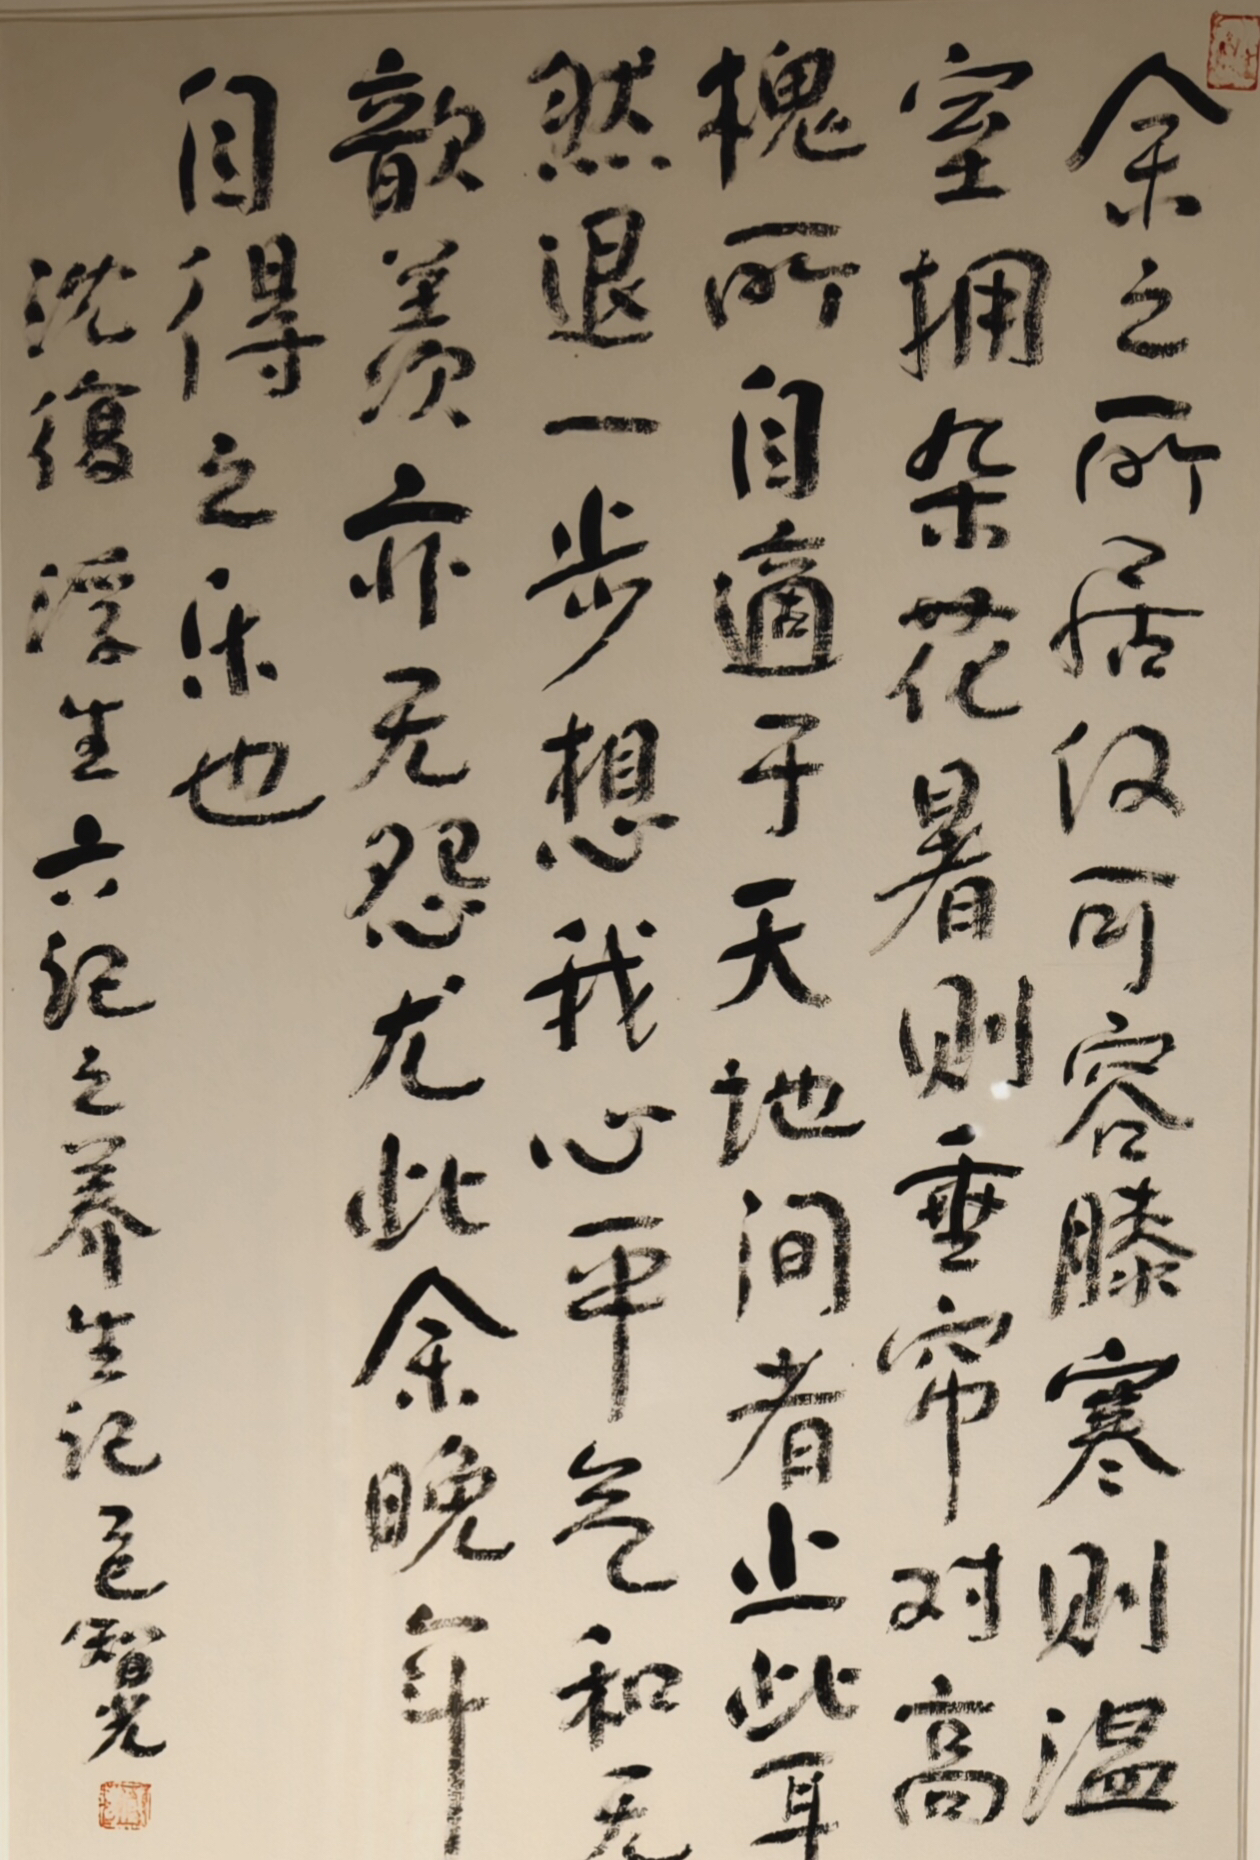 余之所居仅可容膝寒则温
室拥杂花暑则垂帘对高
槐所自適于天地间者止此耳
然退一步想我心平气和无
歆羡亦无怨尤此余晚年
自得之乐也
沈復浮生六记之养生记 智光